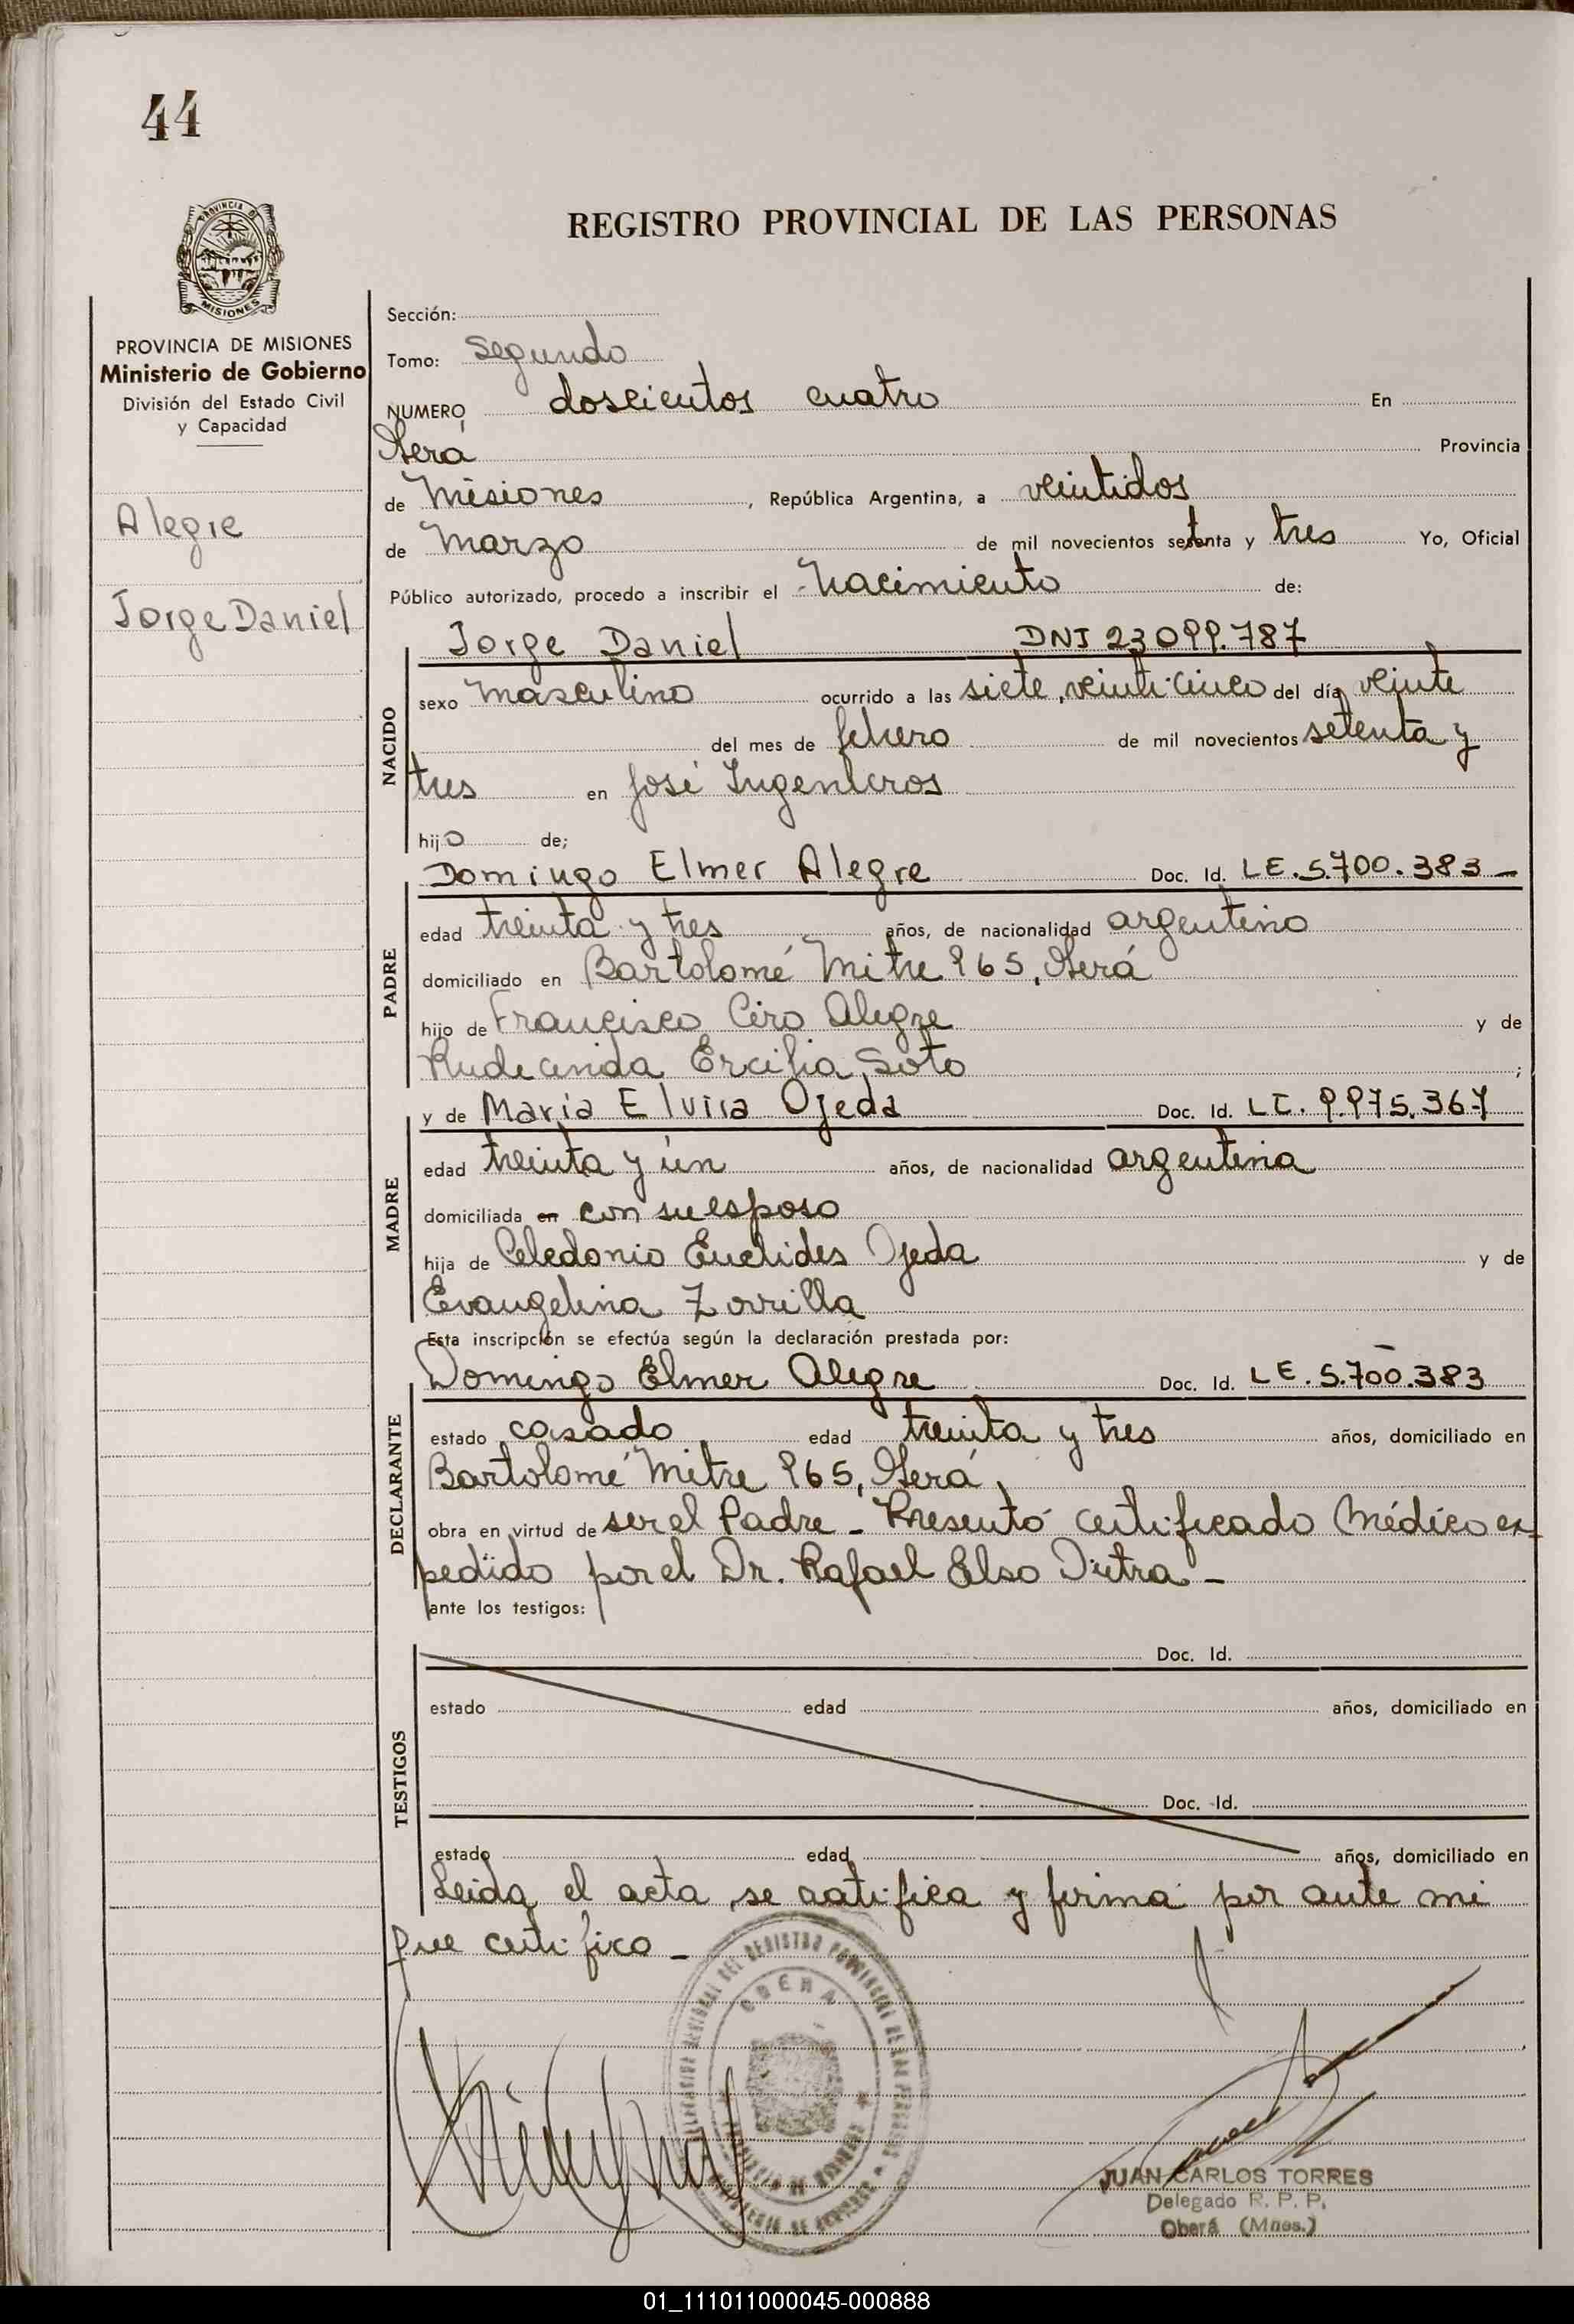 44
PROVINCIA DE
MISIONES
REGISTRO PROVINCIAL DE LAS PERSONAS
PROVINCIA DE MISIONES
Ministerio de Gobierno
División del Estado Civil
y Capacidad
Alegre
Jorge Daniel
Sección:
Tomo: Segundo
NUMERO doscientos cuatro En
Oberá Provincia
de Misiones, República Argentina, a veintidos
de Marzo de mil novecientos setenta y tres Yo, Oficial
Público autorizado, procedo a inscribir el Nacimiento de:
NACIDO
Jorge Daniel DNI 23099.787
sexo masculino ocurrido a las siete, veinticinco del día veinte
del mes de febrero de mil novecientos setenta y
tres en José Ingenieros
hijo de;
PADRE
Domingo Elmer Alegre Doc. Id. LE. 5.700.383-
edad treinta y tres años, de nacionalidad argentino
domiciliado en Bartolomé Mitre 965, Oberá
hijo de Francisco Ciro Alegre y de
Rudecinda Ercilia Soto ;
MADRE
y de María Elvira Ojeda Doc. Id. LC. 9.975.367
edad treinta y un años, de nacionalidad argentina
domiciliada en con su esposo
hija de Celedonio Euclides Ojeda y de
Evangelina Zorrilla
Esta inscripción se efectúa según la declaración prestada por:
DECLARANTE
Domingo Elmer Alegre Doc. Id. LE. 5.700.383
estado casado edad treinta y tres años, domiciliado en
Bartolomé Mitre 965, Oberá
obra en virtud de ser el Padre - Presentó certificado Médico ex-
pedido por el Dr. Rafael Elso Dutra -
ante los testigos:
TESTIGOS
Doc. Id.
estado edad años, domiciliado en
Doc. Id.
estado edad años, domiciliado en
Leida el acta se ratifica y firma por ante mi
que certifico -
OBERA
JUAN CARLOS TORRES
Delegado R. P. P.
Oberá (Mnes.)
01_111011000045-000888